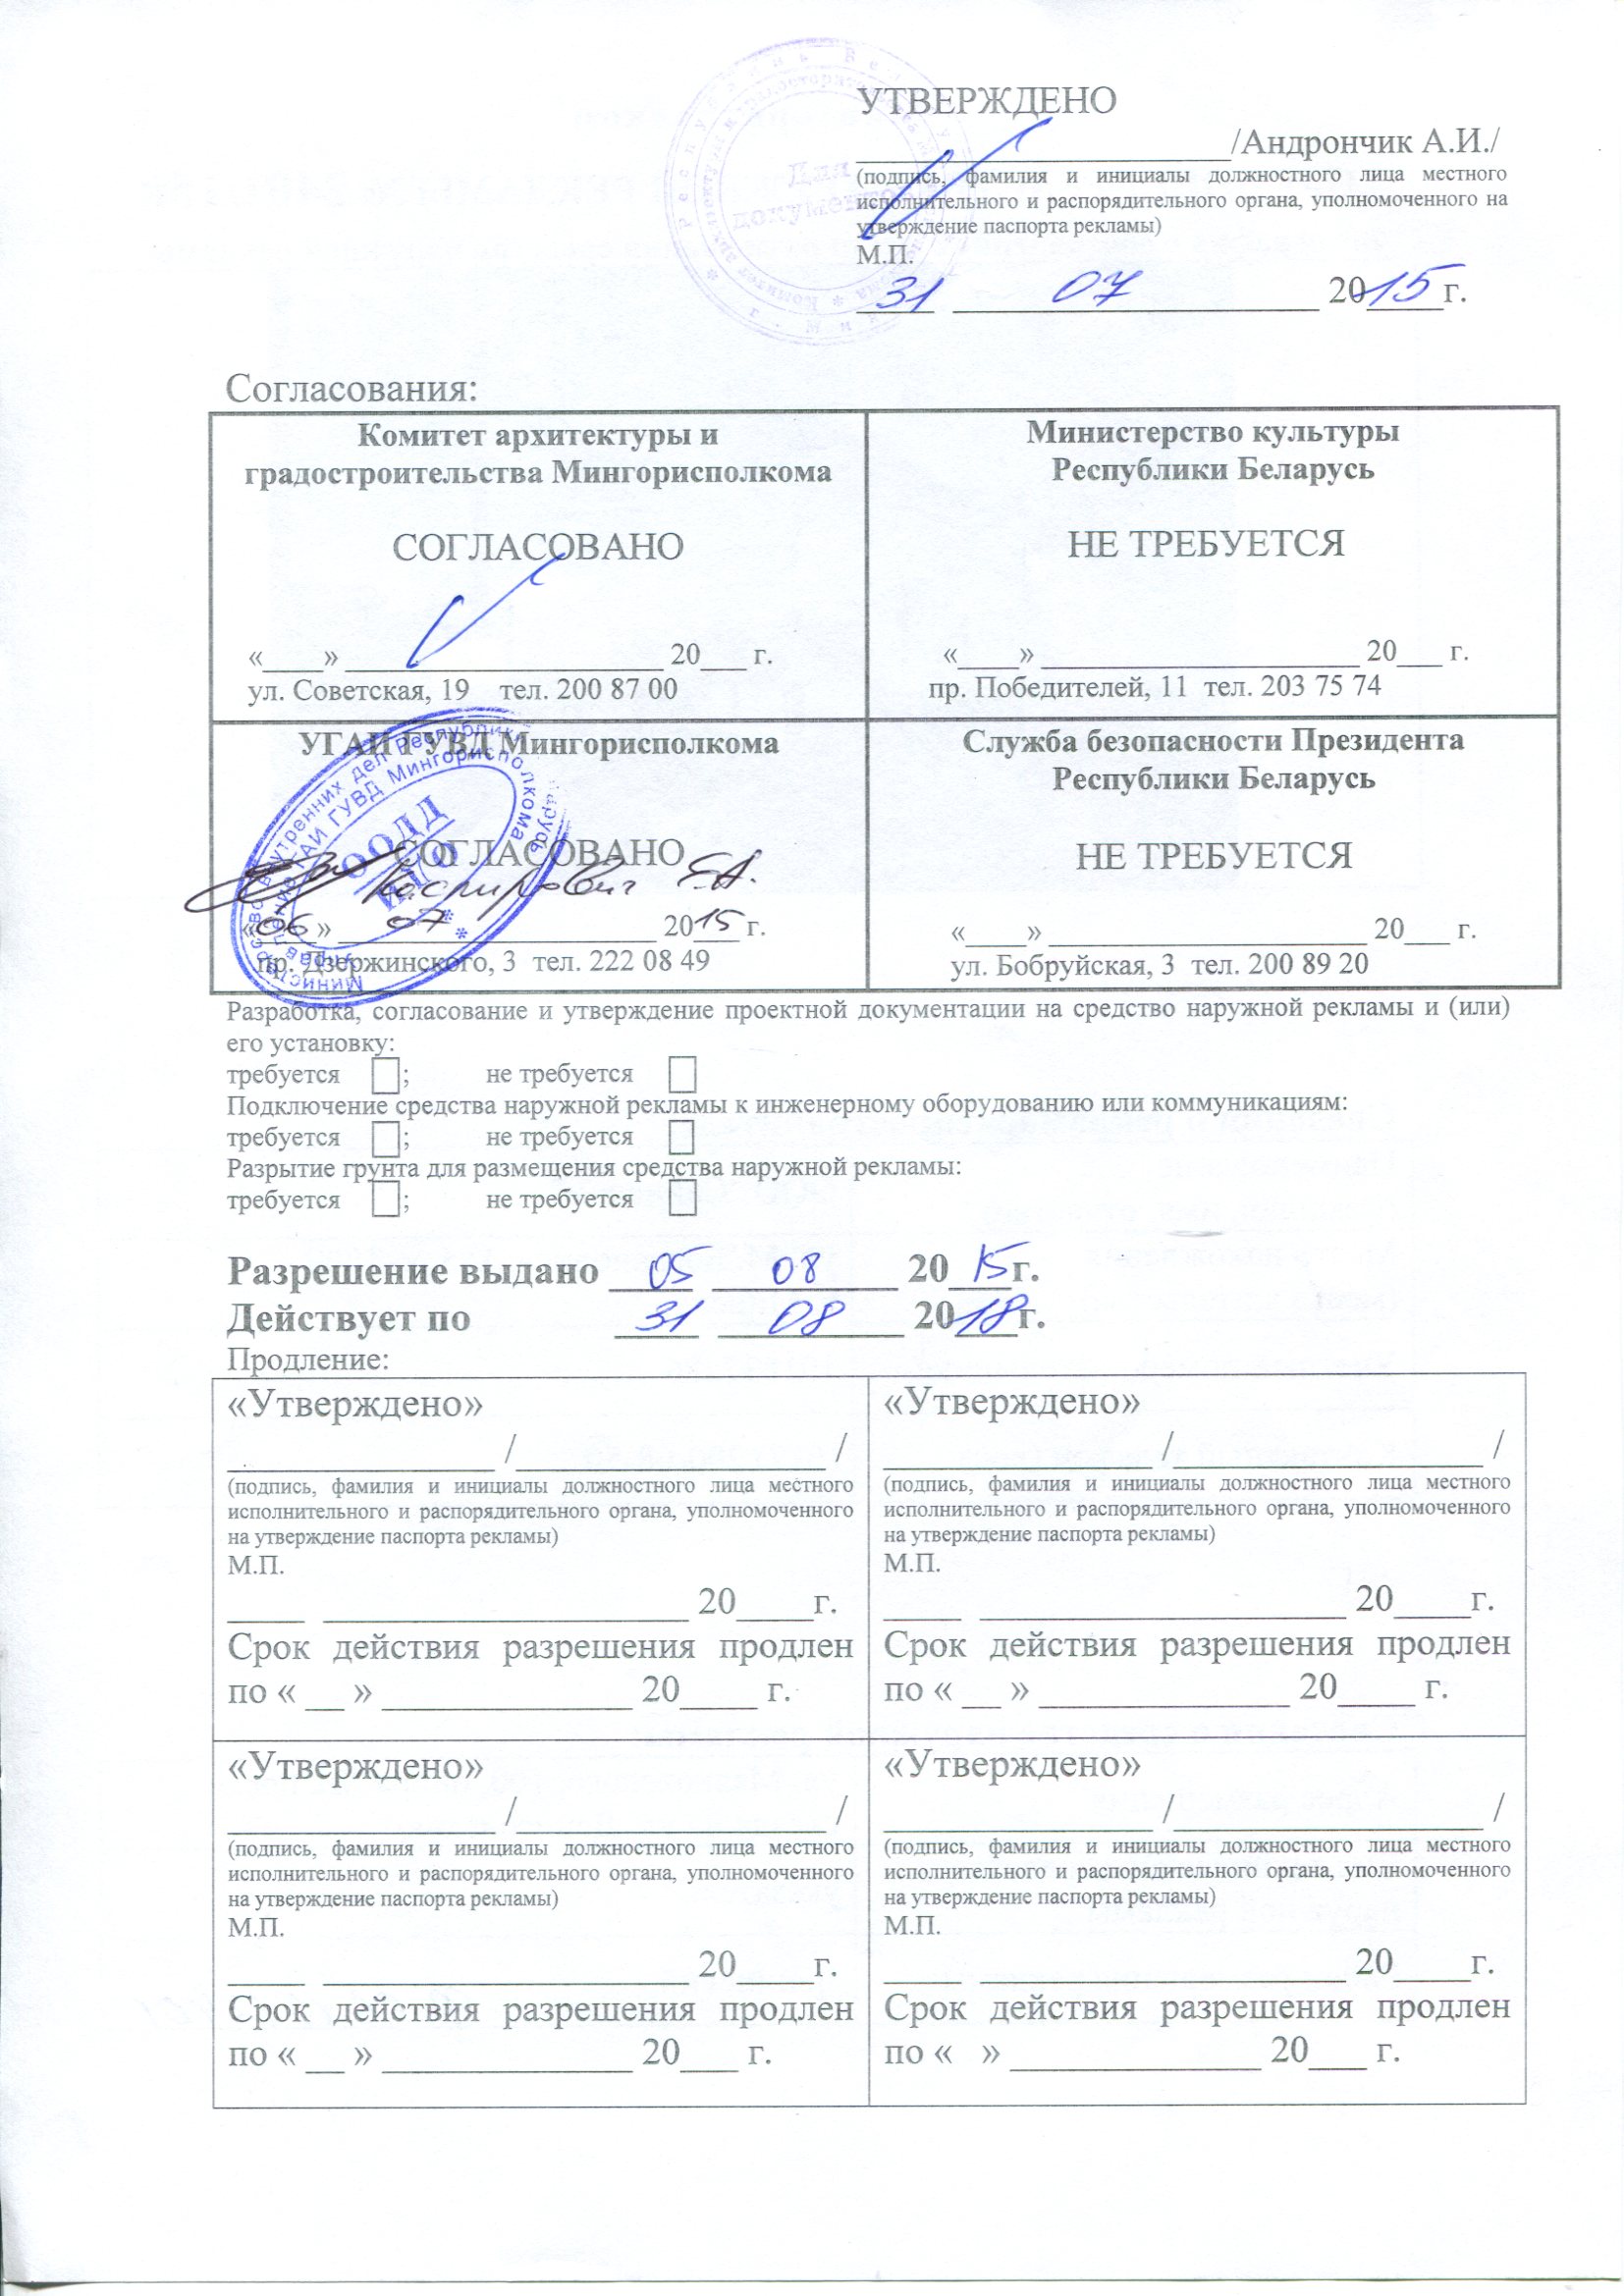 УТВЕРЖДЕНО
____________________/Андрончик А.И./
(подпись, фамилия и инициалы должностного лица местного
исполнительного и распорядительного органа, уполномоченного на
утверждение паспорта рекламы)
М.П.
31 07 2015 г.
Для
документов
Согласования:
Комитет архитектуры и
градостроительства Мингорисполкома
СОГЛАСОВАНО
«____» _____________________ 20___ г.
ул. Советская, 19 тел. 200 87 00
Министерство культуры
Республики Беларусь
НЕ ТРЕБУЕТСЯ
«____» _____________________ 20___ г.
пр. Победителей, 11 тел. 203 75 74
УГАИ ГУВД Мингорисполкома
СОГЛАСОВАНО
Е.А.
«06» 07 2015 г.
пр. Дзержинского, 3 тел. 222 08 49
Министерство внутренних дел Республики Беларусь
Управление ГАИ ГУВД Мингорисполкома
ООДД
Служба безопасности Президента
Республики Беларусь
НЕ ТРЕБУЕТСЯ
«____» _____________________ 20___ г.
ул. Бобруйская, 3 тел. 200 89 20
Разработка, согласование и утверждение проектной документации на средство наружной рекламы и (или)
его установку:
требуется ; не требуется
Подключение средства наружной рекламы к инженерному оборудованию или коммуникациям:
требуется ; не требуется
Разрытие грунта для размещения средства наружной рекламы:
требуется ; не требуется
Разрешение выдано 05 08 2015г.
Действует по 31 08 2018г.
Продление:
«Утверждено»
______________ /________________ /
(подпись, фамилия и инициалы должностного лица местного
исполнительного и распорядительного органа, уполномоченного
на утверждение паспорта рекламы)
М.П.
____ ___________________ 20____г.
Срок действия разрешения продлен
по « __ » _____________ 20____ г.
«Утверждено»
______________ /________________ /
(подпись, фамилия и инициалы должностного лица местного
исполнительного и распорядительного органа, уполномоченного
на утверждение паспорта рекламы)
М.П.
____ ___________________ 20____г.
Срок действия разрешения продлен
по « __ » _____________ 20____ г.
«Утверждено»
______________ /________________ /
(подпись, фамилия и инициалы должностного лица местного
исполнительного и распорядительного органа, уполномоченного
на утверждение паспорта рекламы)
М.П.
____ ___________________ 20____г.
Срок действия разрешения продлен
по « __ » _____________ 20___ г.
«Утверждено»
______________ /________________ /
(подпись, фамилия и инициалы должностного лица местного
исполнительного и распорядительного органа, уполномоченного
на утверждение паспорта рекламы)
М.П.
____ ___________________ 20____г.
Срок действия разрешения продлен
по « » _____________ 20___ г.